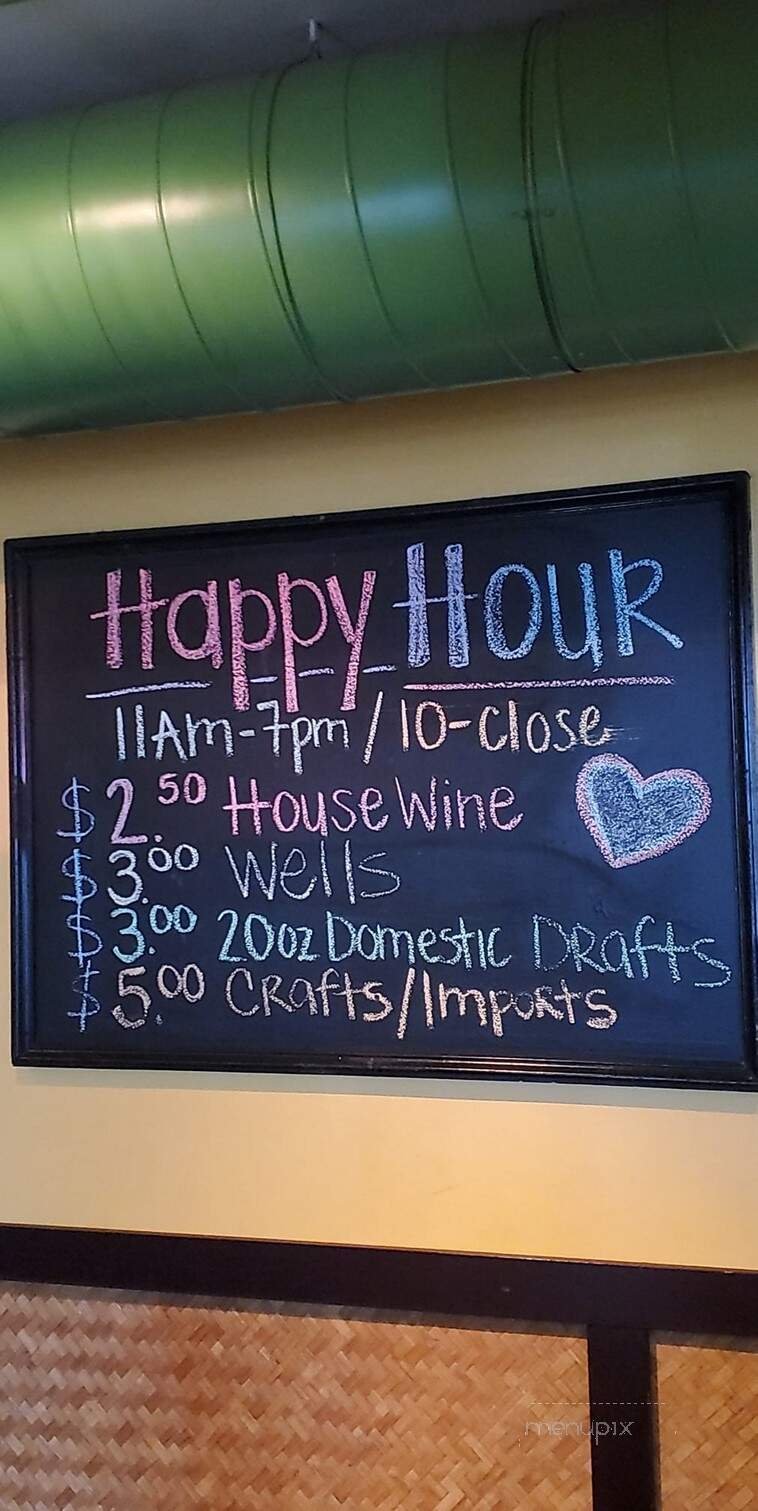 Happy Hour
11Am-7pm / 10-Close
$2.50 House Wine
$3.00 Wells
$3.00 20oz Domestic Drafts
$5.00 Crafts/Imports
menupix